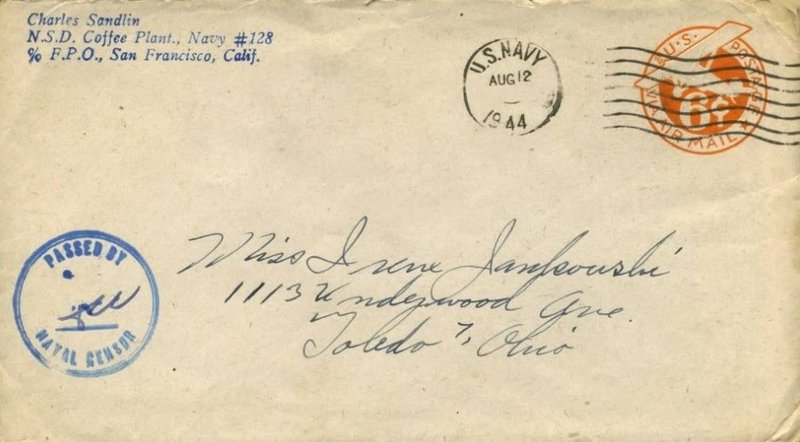 Charles Sandlin
N.S.D. Coffee Plant., Navy #128
% F.P.O., San Francisco, Calif.
U.S. NAVY
AUG 12
1944
U.S. POSTAGE
6¢
VIA AIR MAIL
PASSED BY
NAVAL CENSOR
Miss Irene Jankowski
1113 Underwood Ave.
Toledo 7, Ohio